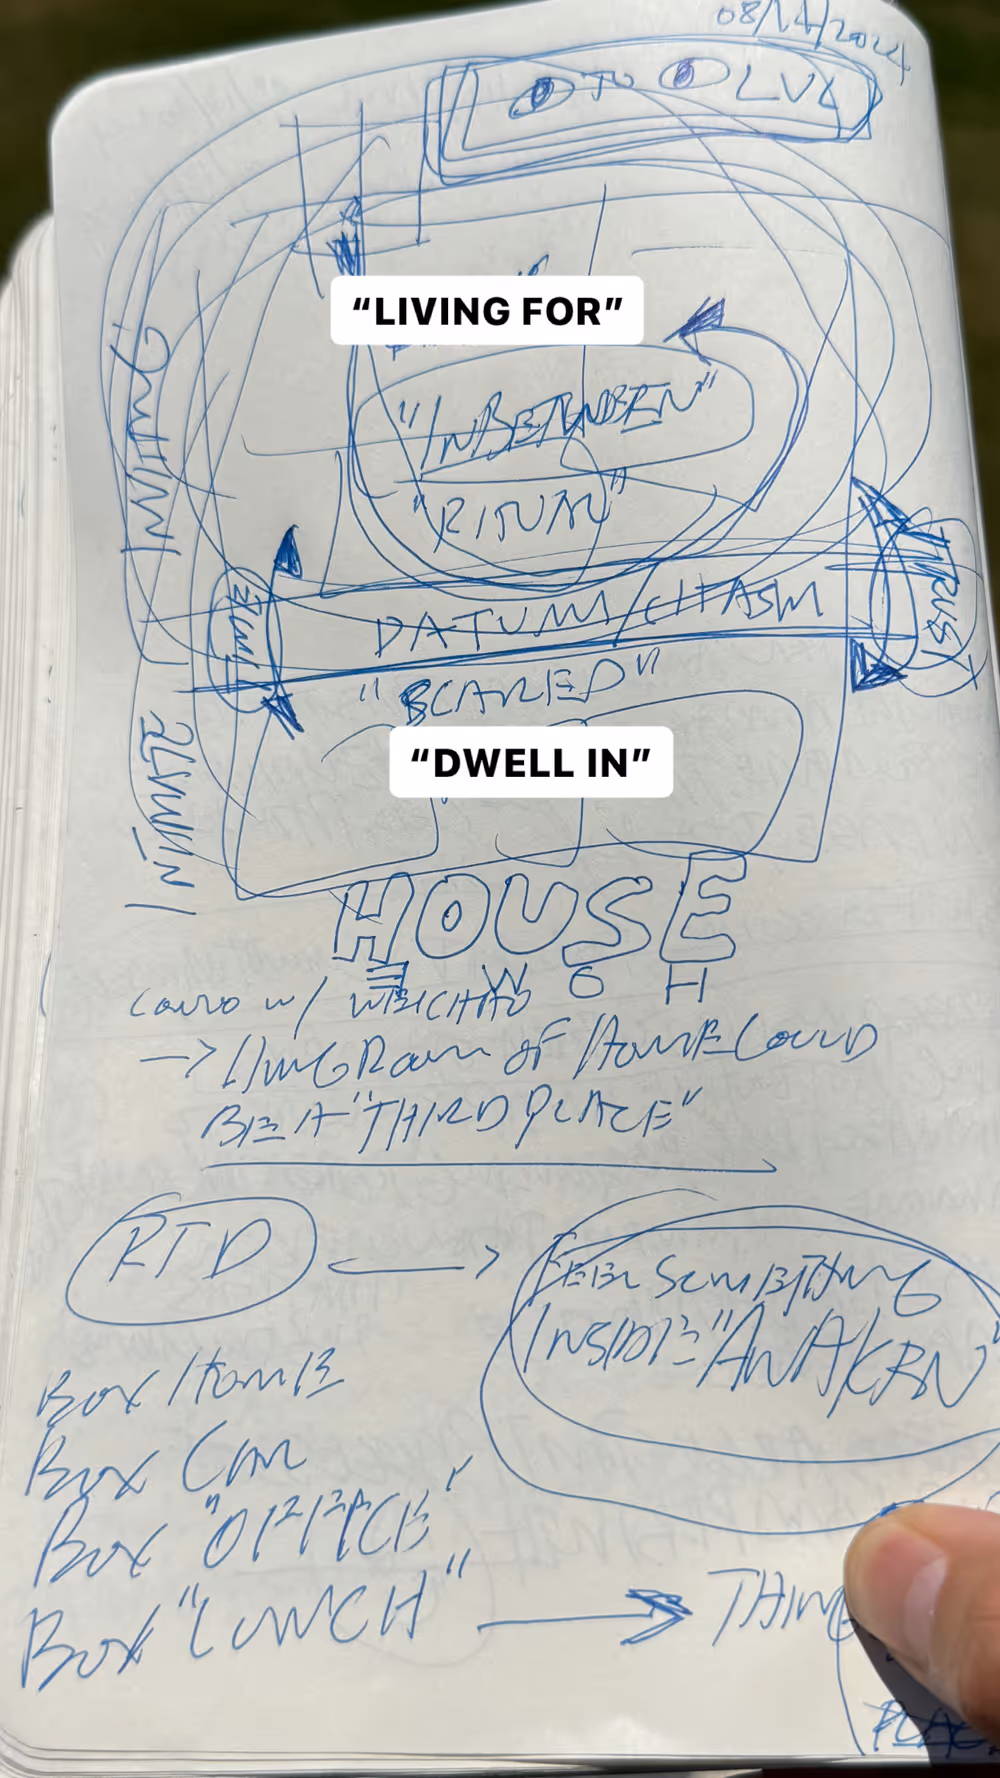 08/14/2024
TO LVL
“LIVING FOR”
"INBETWEEN"
"RITUAL"
DATUM/CHASM
TRUST
"SCARED"
“DWELL IN”
HOUSE
W O H
COULD W/
→ LIVING ROOM OF HOME COULD
BE A "THIRD PLACE"
RTD
FEEL SOMETHING
INSIDE "AWAKEN"
BOX HOME
BOX CAR
BOX "OFFICE"
BOX "LUNCH" → THING
PLAC